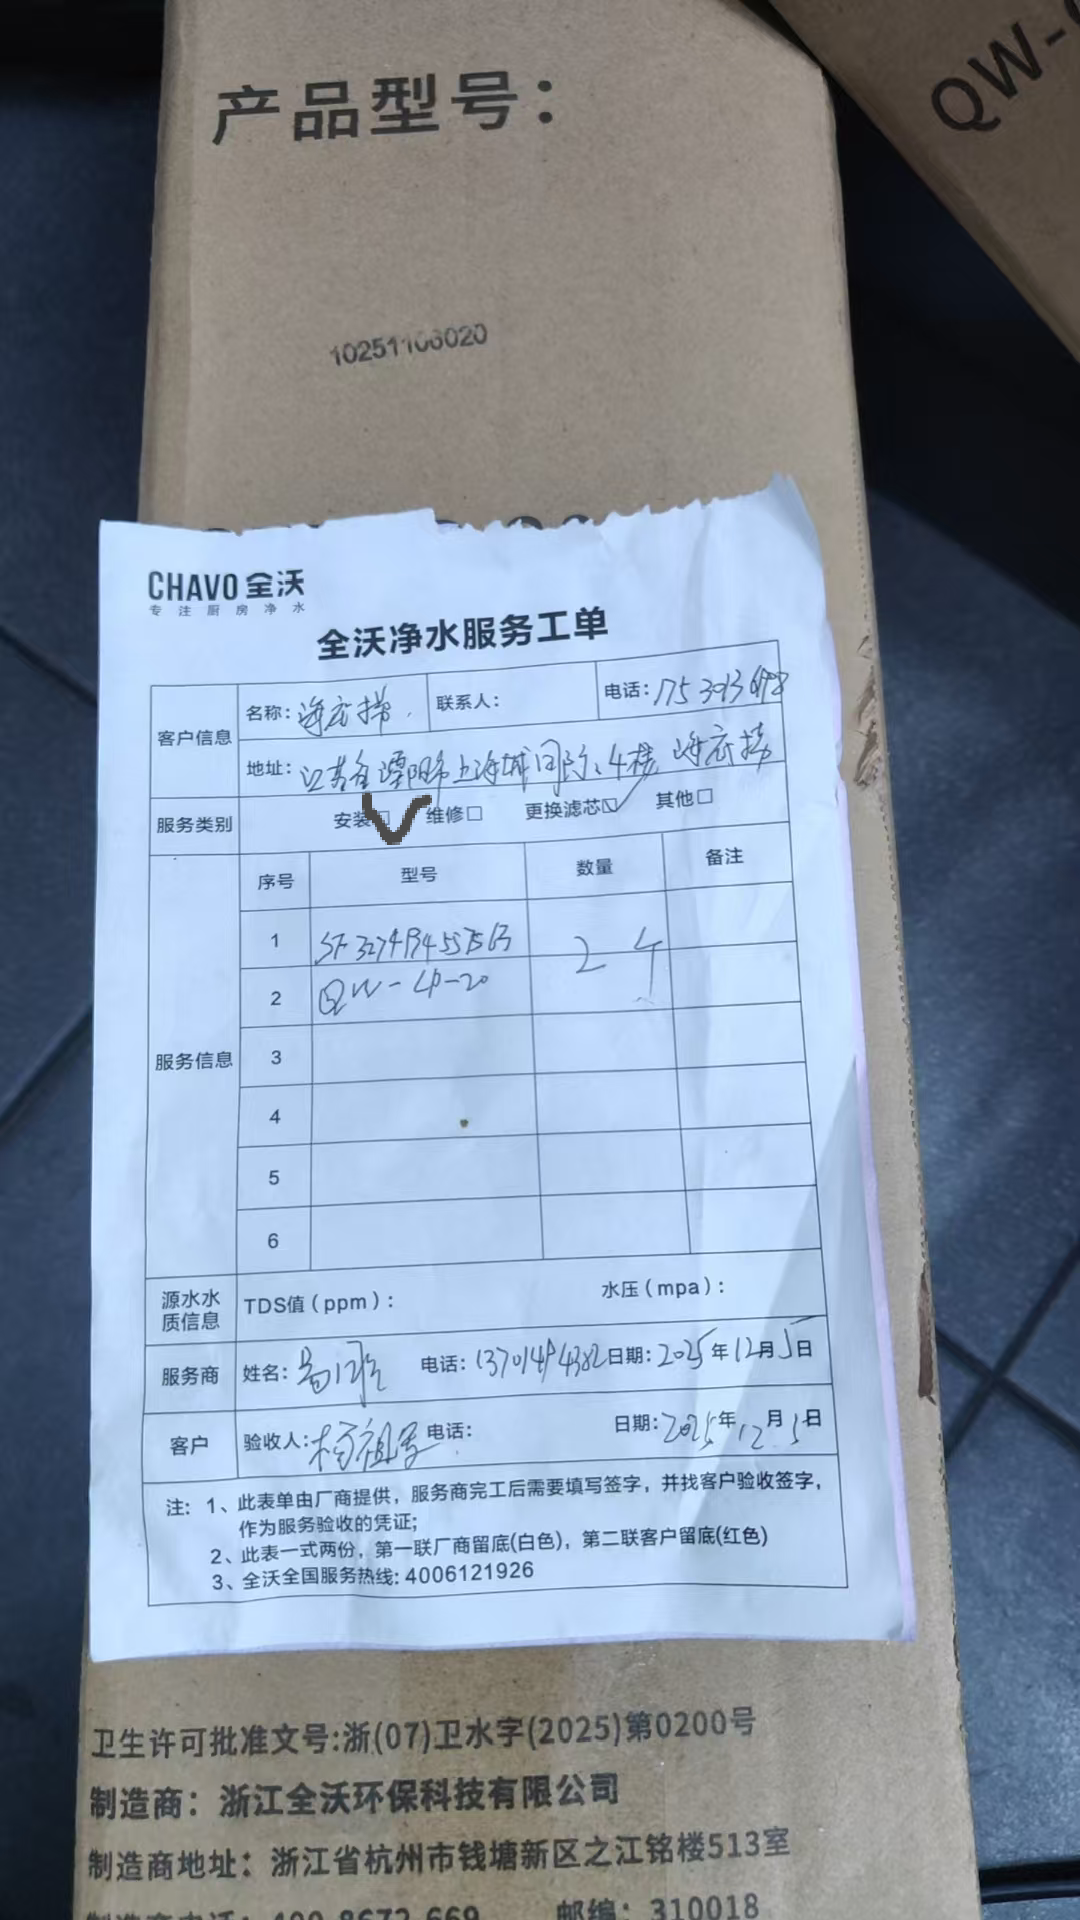 产品型号：
QW-
10251106020
CHAVO 全沃
专注厨房净水
全沃净水服务工单
客户信息
名称：海底捞
联系人：
电话：
地址：江苏省溧阳市上海城国际、4楼 海底捞
服务类别
安装 维修□ 更换滤芯☑ 其他□
服务信息
序号 型号 数量 备注
1 2个
2 QW-4P-20
3
4
5
6
源水水质信息
TDS值（ppm）： 水压（mpa）：
服务商
姓名： 电话：13701494382 日期：2025年12月5日
客户
验收人： 电话： 日期：2025年12月5日
注：1、此表单由厂商提供，服务商完工后需要填写签字，并找客户验收签字，
作为服务验收的凭证；
2、此表一式两份，第一联厂商留底(白色)，第二联客户留底(红色)
3、全沃全国服务热线：4006121926
卫生许可批准文号:浙(07)卫水字(2025)第0200号
制造商：浙江全沃环保科技有限公司
制造商地址：浙江省杭州市钱塘新区之江铭楼513室
制造商电话：400-8672-669 邮编：310018